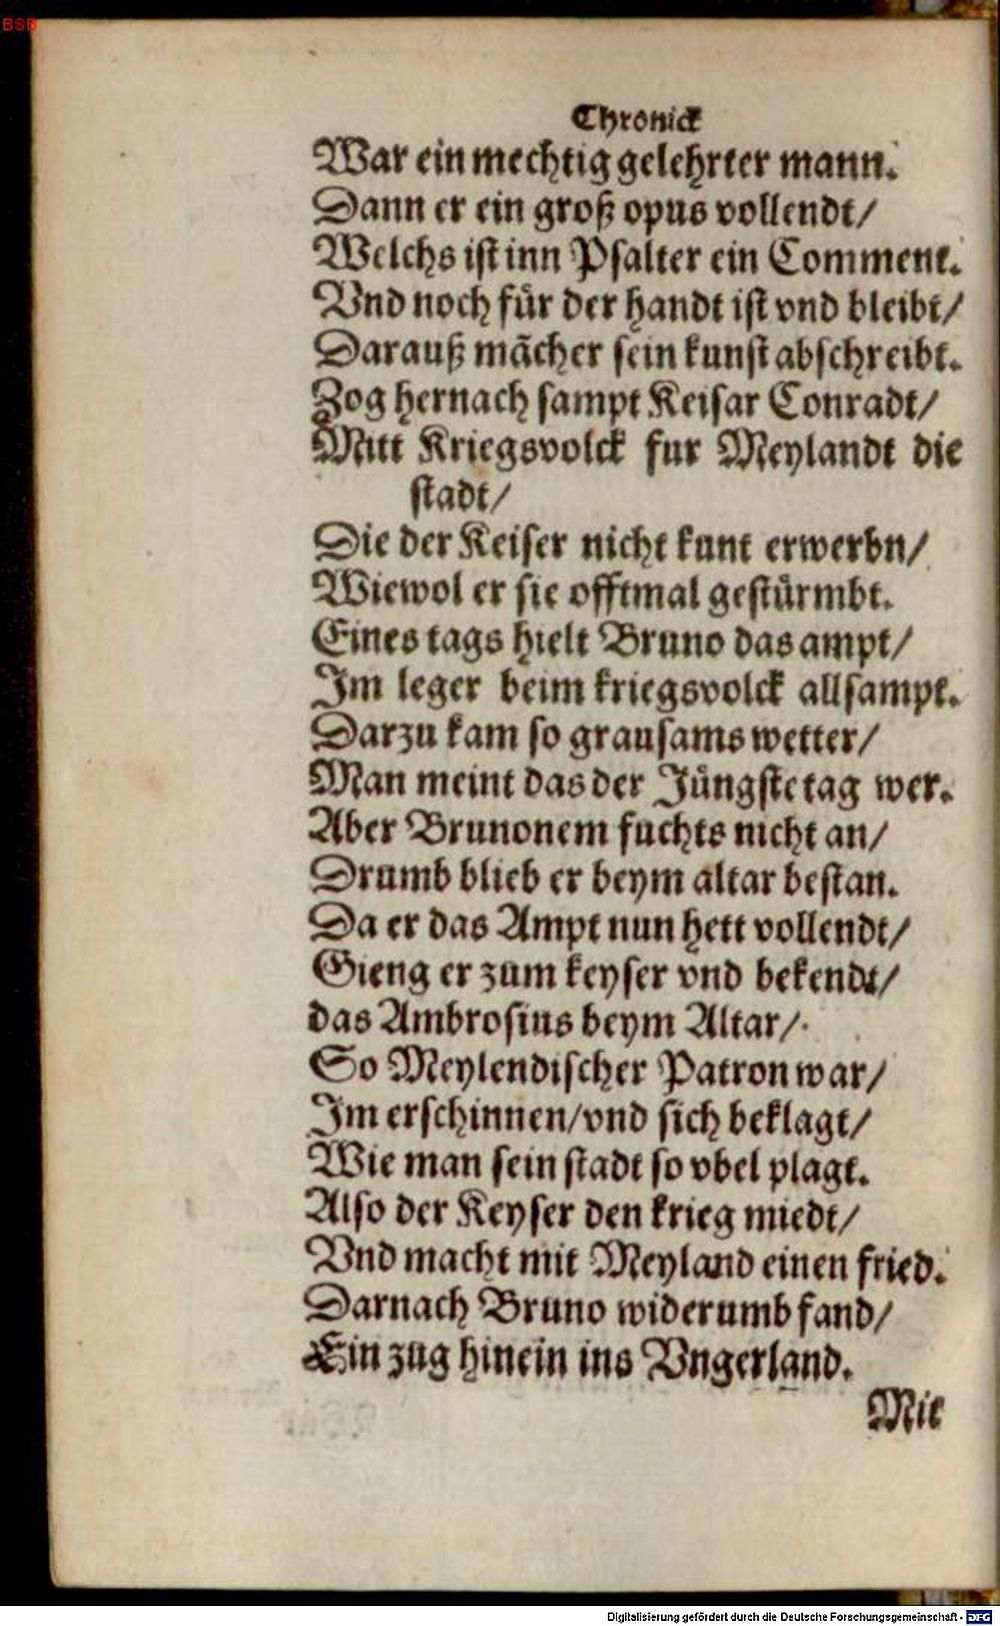 BSB
Chronick
War ein mechtig gelehrter mann.
Dann er ein groß opus vollendt/
Welchs ist inn Psalter ein Comment.
Vnd noch für der handt ist vnd bleibt/
Darauß mãcher sein kunst abschreibt.
Zog hernach sampt Keisar Conradt/
Mitt Kriegsvolck fur Meylandt die
stadt/
Die der Keiser nicht kunt erwerbn/
Wiewol er sie offtmal gestürmbt.
Eines tags hielt Bruno das ampt/
Im leger beim kriegsvolck allsampt.
Darzu kam so grausams wetter/
Man meint das der Jüngste tag wer.
Aber Brunonem fuchts nicht an/
Drumb blieb er beym altar bestan.
Da er das Ampt nun hett vollendt/
Gieng er zum keyser vnd bekendt/
das Ambrosius beym Altar/
So Meylendischer Patron war/
Im erschinnen/vnd sich beklagt/
Wie man sein stadt so vbel plagt.
Also der Keyser den krieg miedt/
Vnd macht mit Meyland einen fried.
Darnach Bruno widerumb fand/
Ein zug hinein ins Vngerland.
Mit
Digitalisierung gefördert durch die Deutsche Forschungsgemeinschaft - DFG